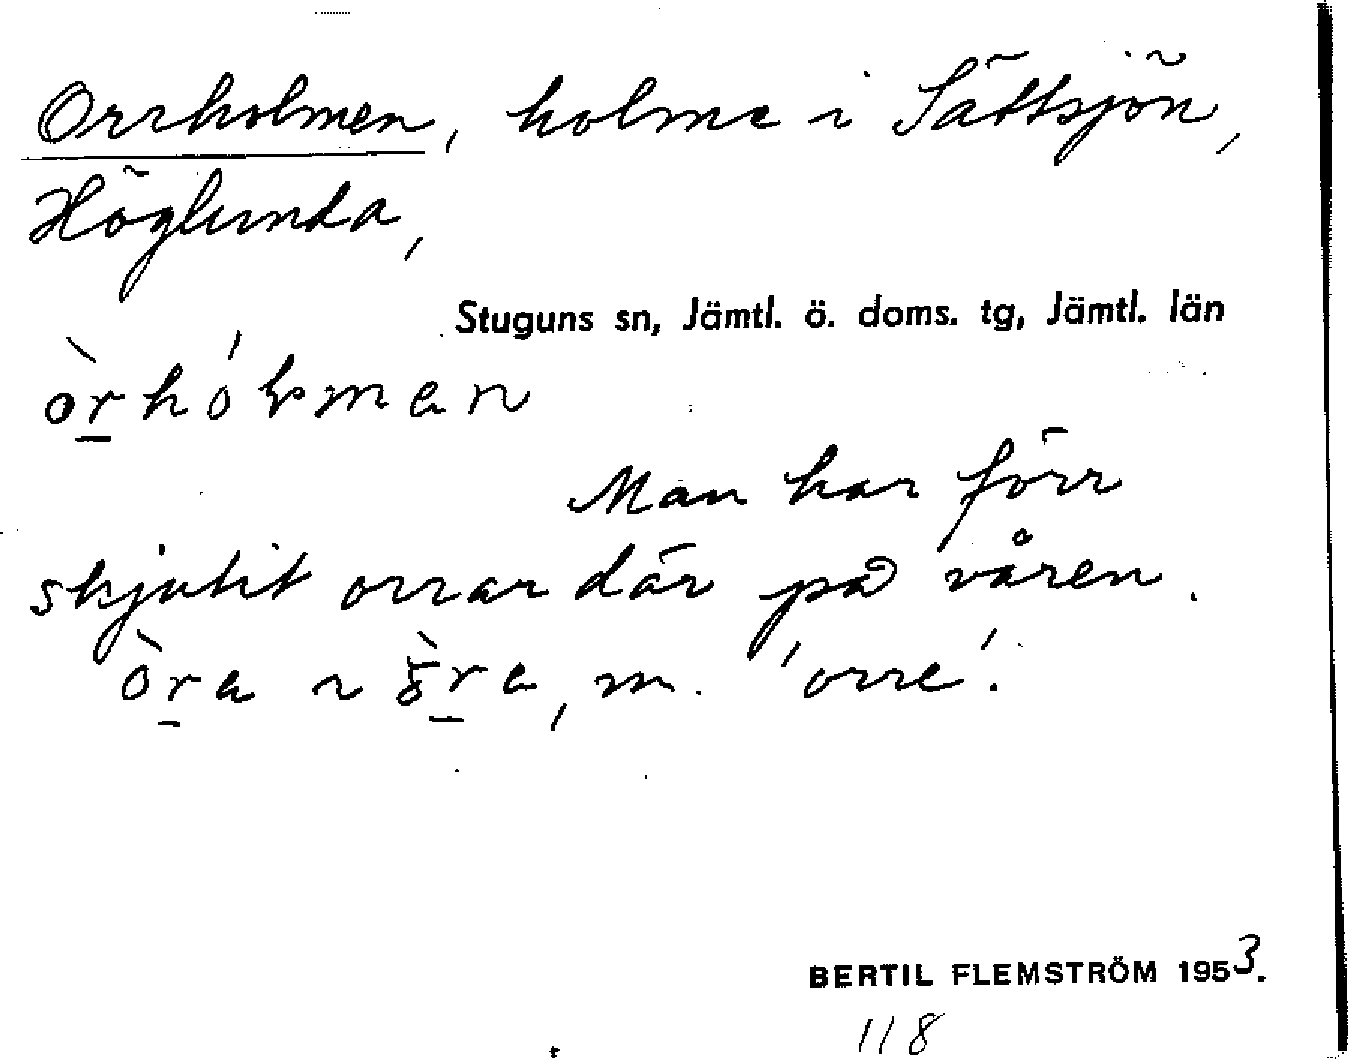 Orrholmen, holme i Sättsjön,
Höglunda,
Stuguns sn, Jämtl. ö. doms. tg, Jämtl. län
Man har förr
skjutit orrar där på våren.
òra ~ m. 'orre'.
BERTIL FLEMSTRÖM 1953.
118